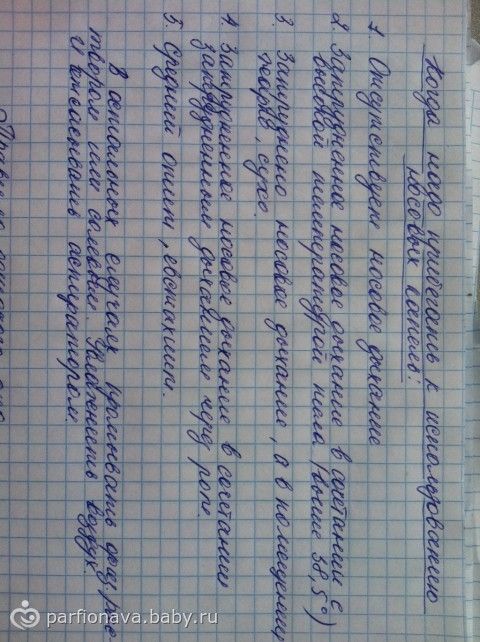 Когда надо прибегать к использованию
носовых капель:
1. Отсутствует носовое дыхание
2. Затрудненное носовое дыхание в сочетании с
высокой температурой тела (выше 38,5°)
3. Затруднено носовое дыхание, а в помещении
жарко, сухо.
4. Затрудненное носовое дыхание в сочетании
затрудненным дыханием через рот.
5. Средний отит, евстахиит.
В остальных случаях промывать физ/рас
твором или солевым. Увлажнять воздух.
И отсасывать аспиратором.
parfionava.baby.ru